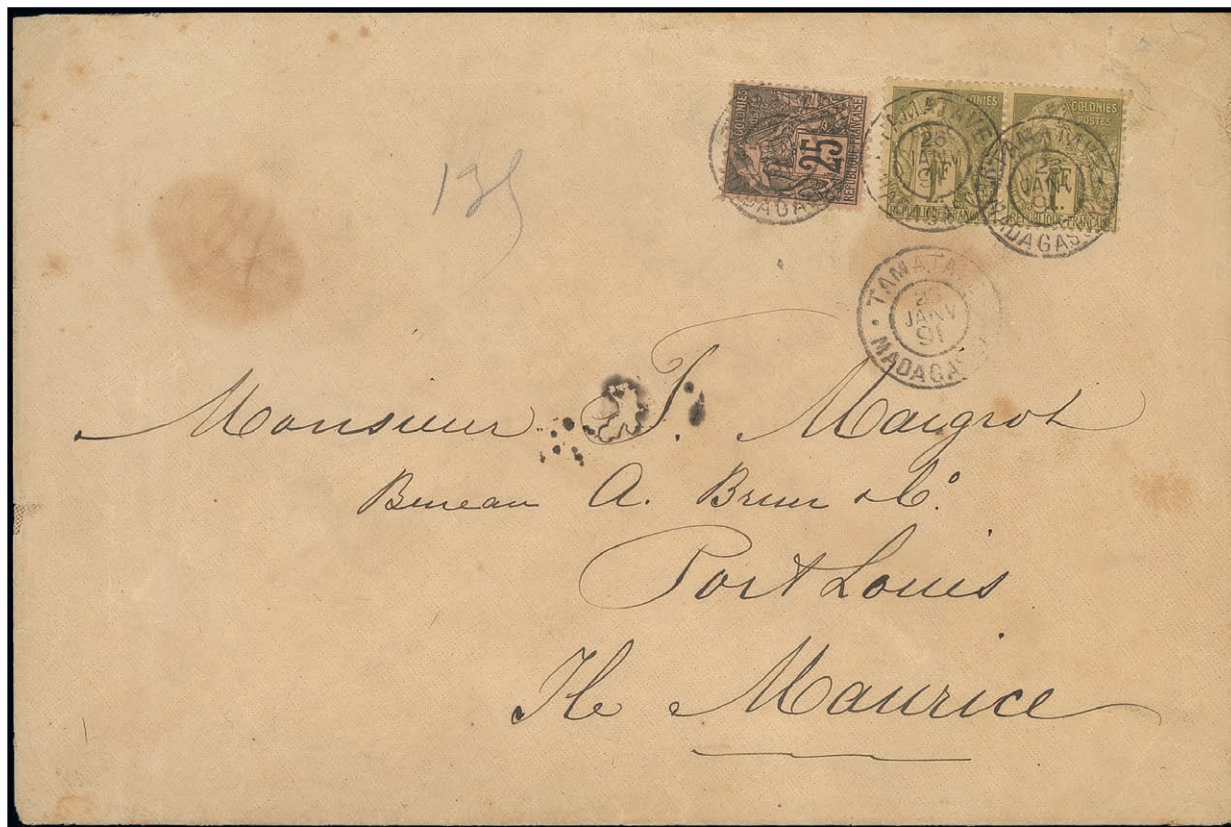 COLONIES
POSTES
25
REPUBLIQUE FRANÇAISE
COLONIES
POSTES
1F
REPUBLIQUE FRANÇAISE
COLONIES
POSTES
1F
REPUBLIQUE FRANÇAISE
TAMATAVE
JANV
91
MADAGASCAR
TAMATAVE
JANV
91
MADAGASCAR
TAMATAVE
JANV
91
MADAGASCAR
Monsieur F. Maigrot
Bureau A. Brun & Co.
Port Louis
Ile Maurice